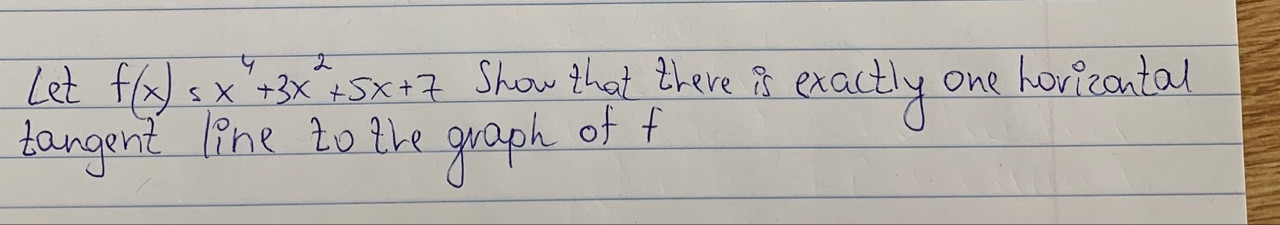 Let f(x) = x⁴+3x²+5x+7 Show that there is exactly one horizontal
tangent line to the graph of f